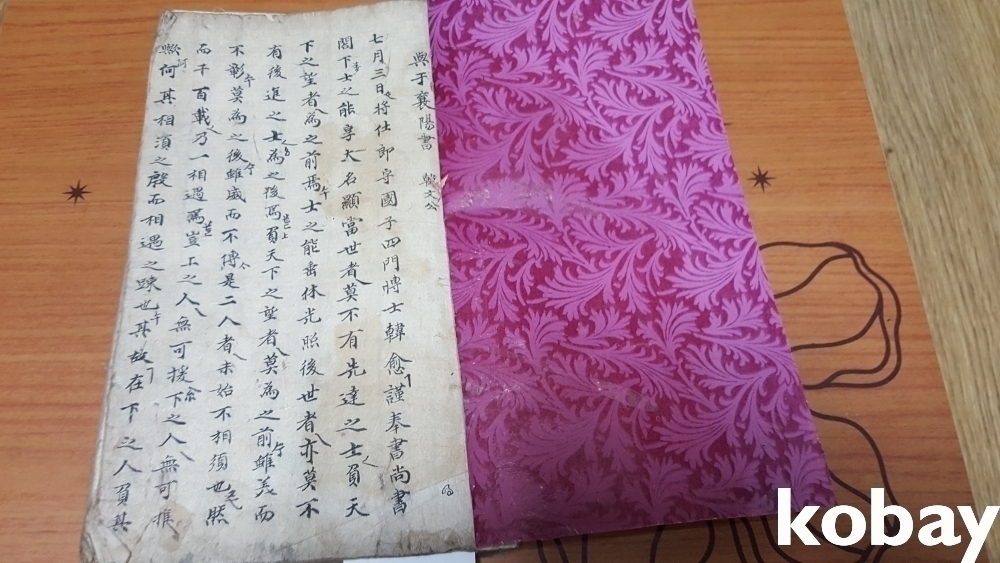 與于襄陽書 韓文公
七月三日將仕郎守國子四門博士韓愈謹奉書尚書
閤下士之能享大名顯當世者莫不有先達之士負天
下之望者為之前焉士之能垂休光照後世者亦莫不
有後進之士為之後焉負天下之望者莫為之前雖美而
不彰莫為之後雖盛而不傳是二人者未始不相須也然
而千百載乃一相遇焉豈上之人無可援下之人無可推
歟何其相湏之殷而相遇之踈也其故在下之人負其
kobay